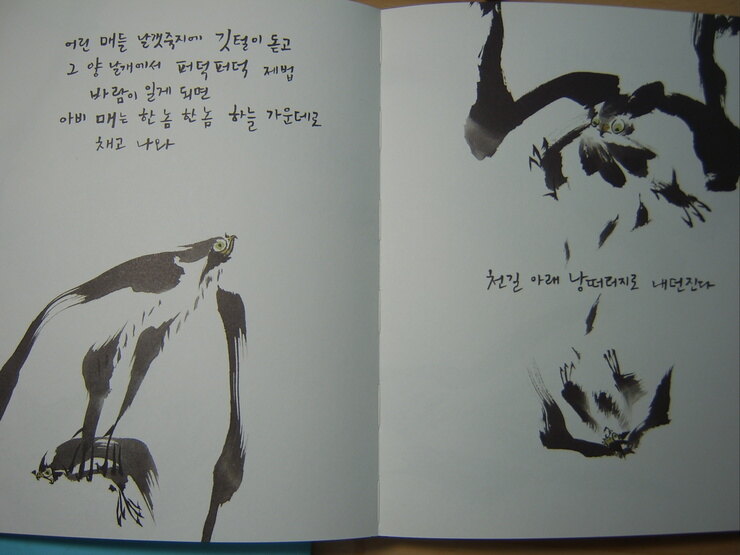 어린 매들 날갯죽지에 깃털이 돋고
그 양 날개에서 퍼덕퍼덕 제법
바람이 일게 되면
아비 매는 한 놈 한 놈 하늘 가운데로
채고 나와
천길 아래 낭떠러지로 내던진다